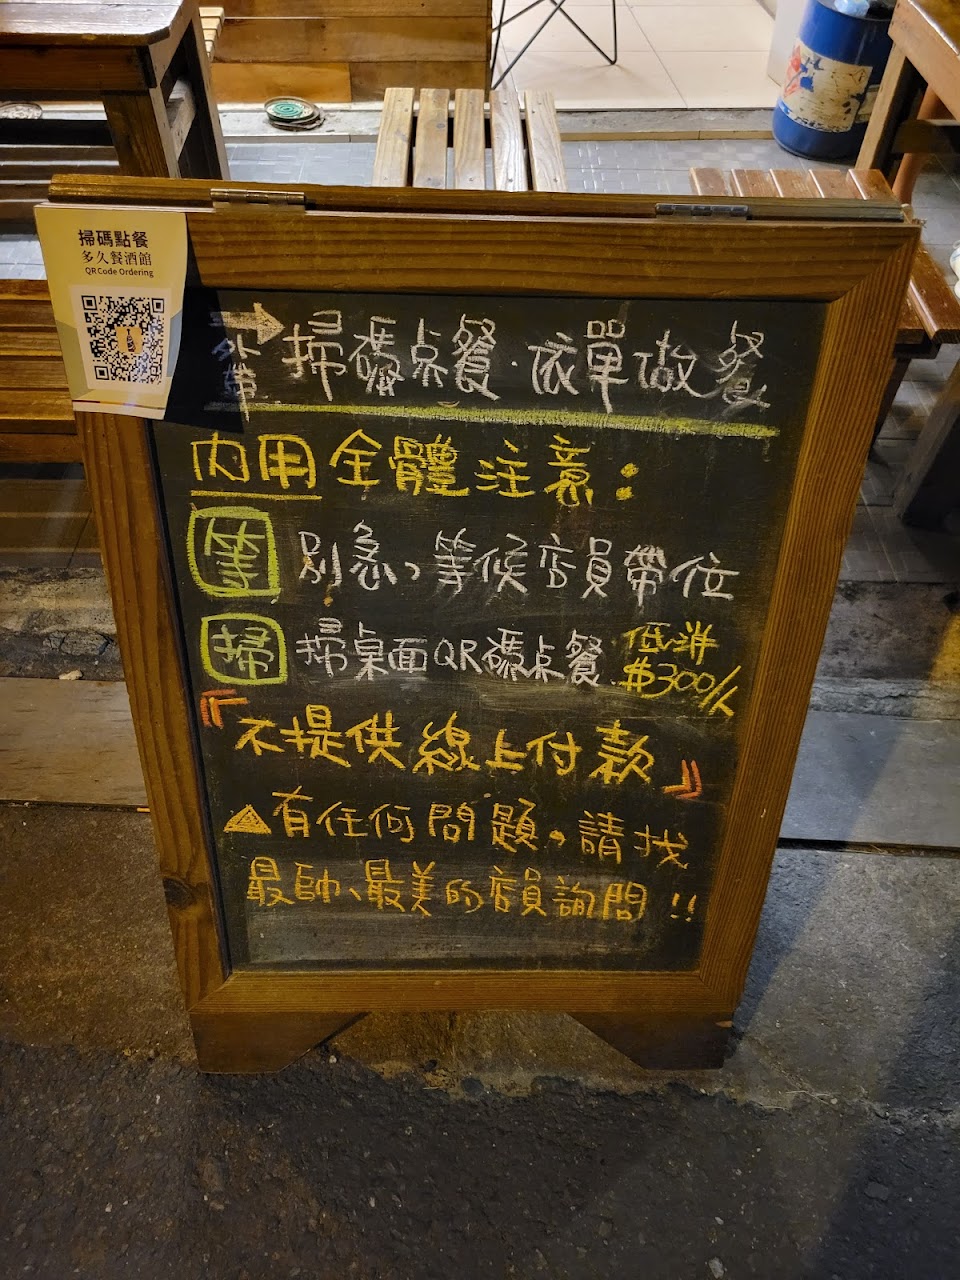 掃碼點餐
多久餐酒館
QR Code Ordering
外帶 → 掃碼点餐·依單做餐
內用全體注意：
等 別急，等候店員帶位
掃 掃桌面QR碼点餐 低消 $300/人
『不提供線上付款』
▲有任何問題，請找
最帥、最美的店員詢問!!